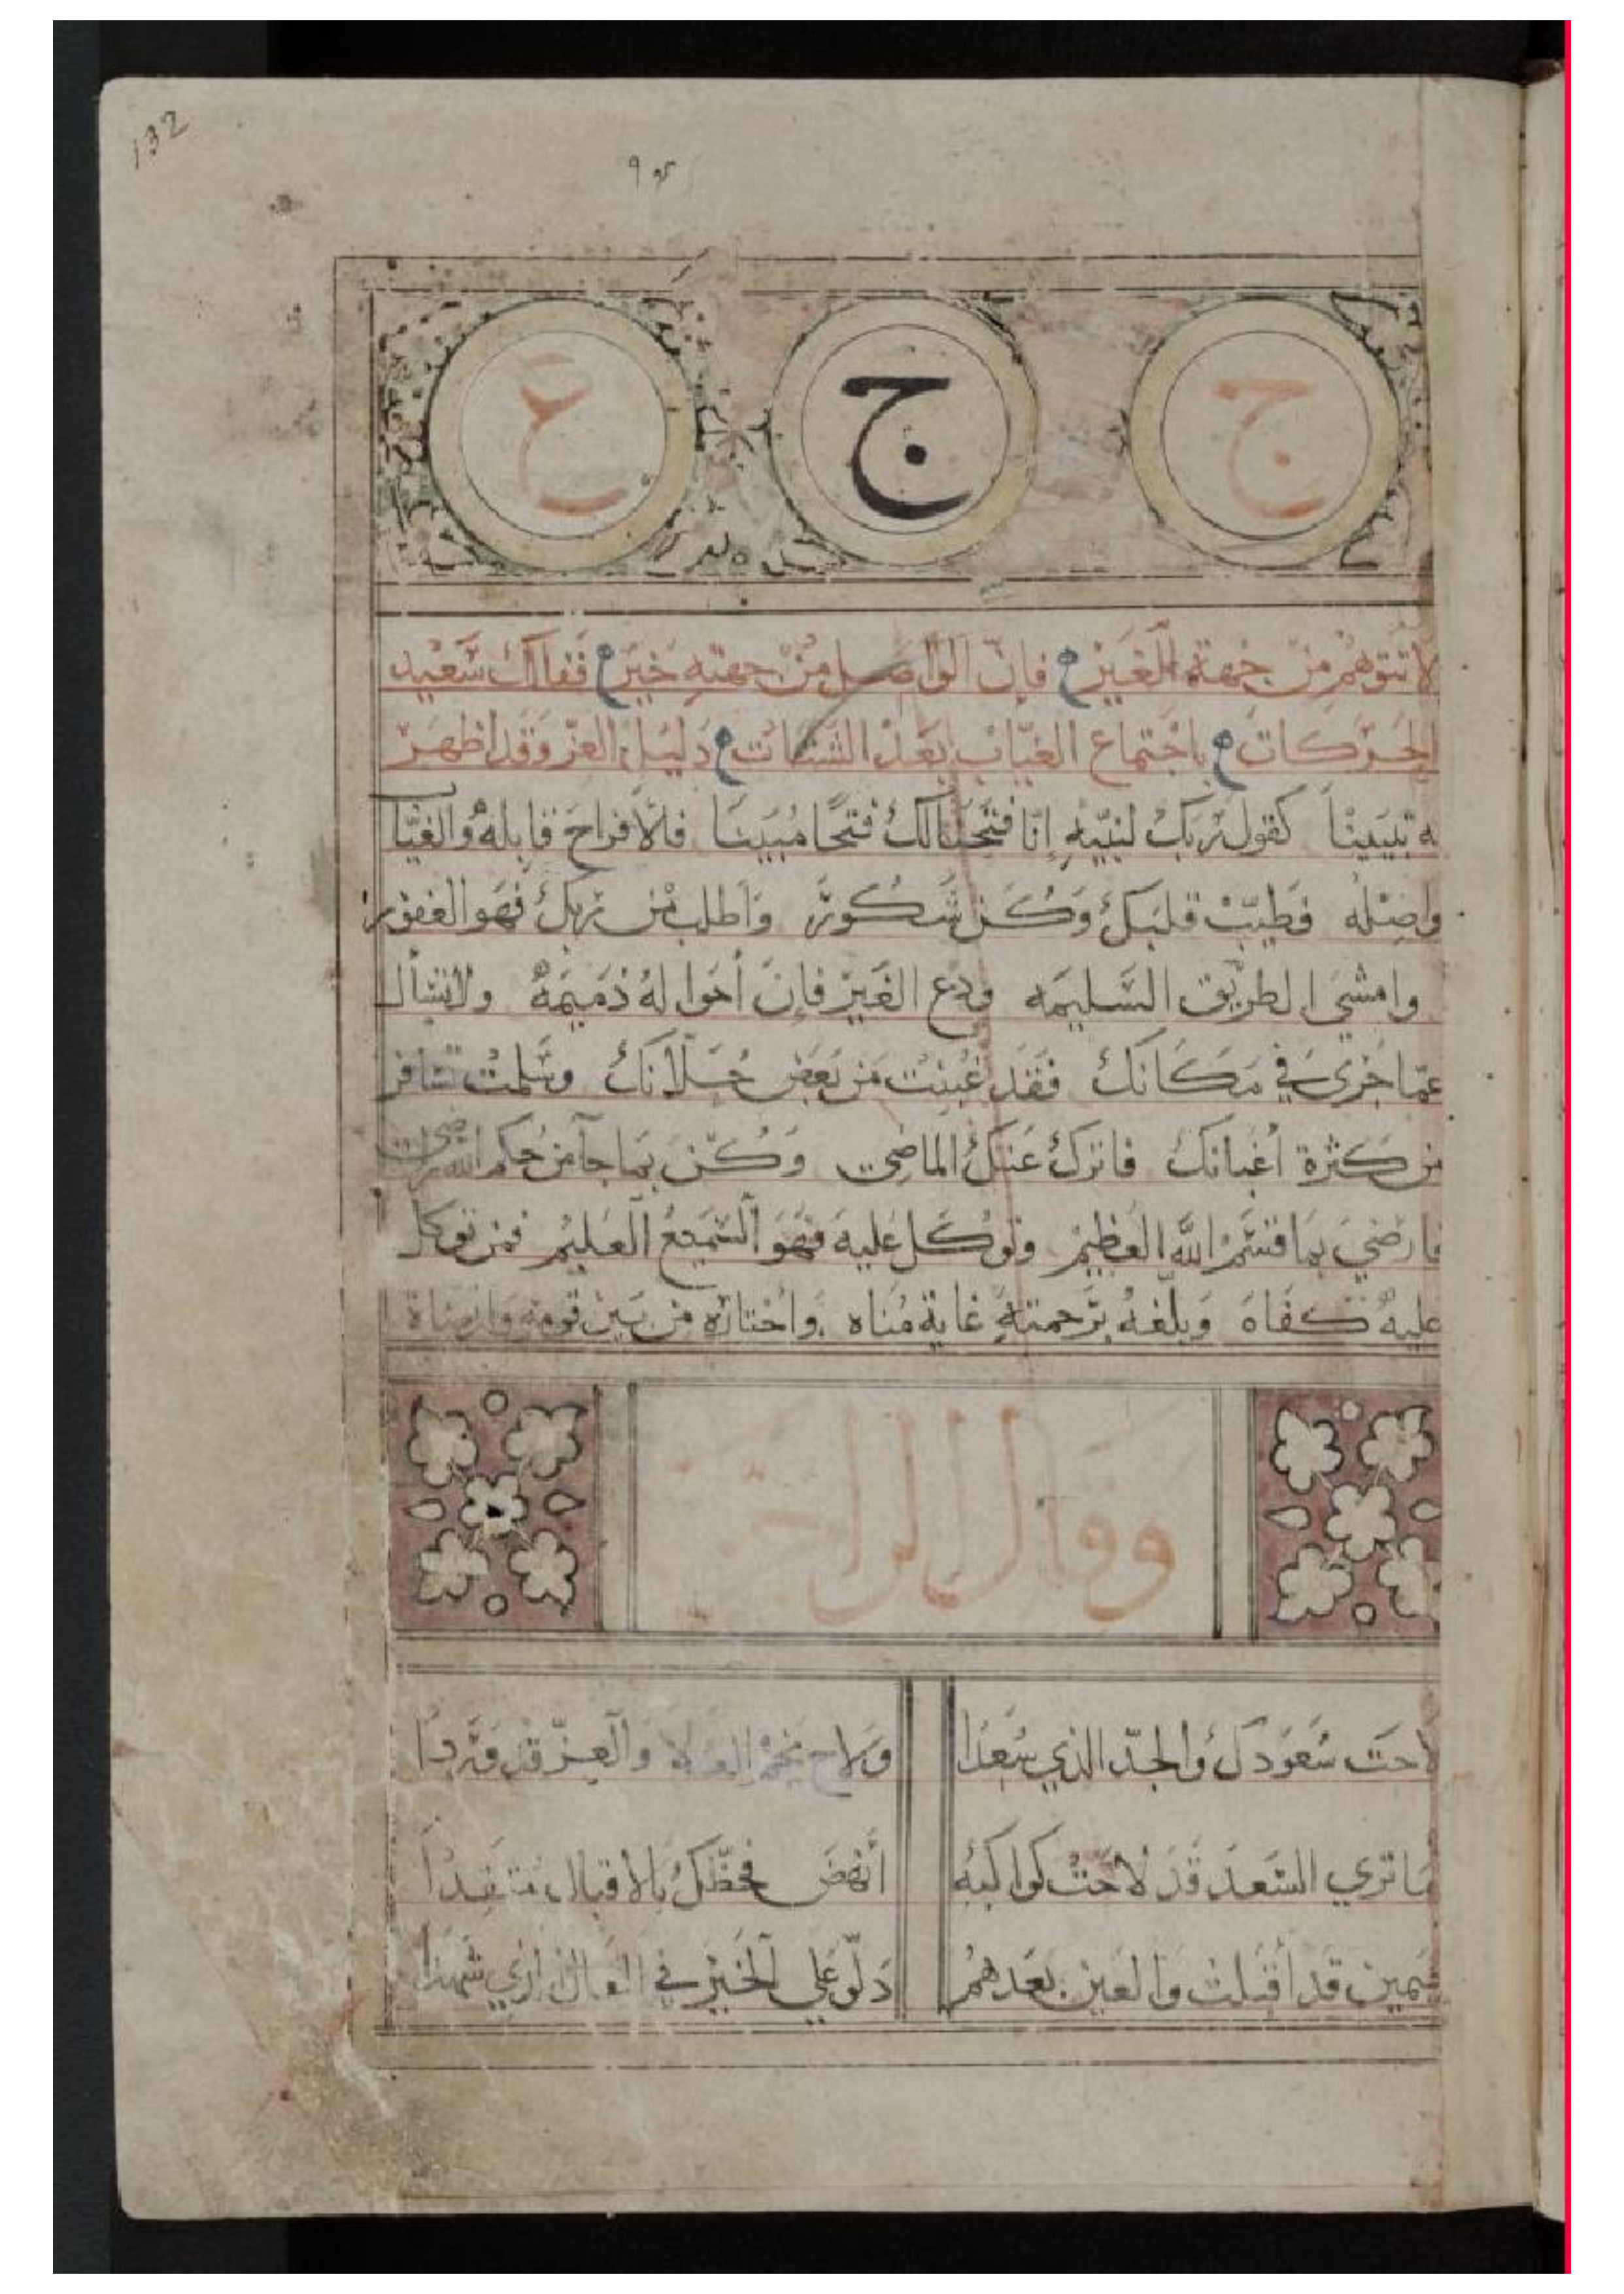 132
ج ج ع
لا تتوهم من جهة الغير فان الواصل من جهته خير ففالك سعيد
الحركات باجتماع الغياب بعد الشتات دليل العز وقد اظهر
به تبيينا كقول ربك لنبيه انا فتحنا لك فتحا مبينا فالافراح قابله والغياب
واصله فطيب قلبك وكن شكور واطلب من ربك فهو الغفور
وامشي الطريق السليمه ودع الغير فان أحواله ذميمه ولا تسأل
عما جرى في مكانك فقد غبنت من بعض خلانك وسلمت
من كثرة اغبانك فاترك عنك الماضي وكن بما جآ من حكم الله
فارضي بما قسم الله العظيم وتوكل عليه فهو السميع العليم فمن توكل
عليه كفاه وبلغه برحمته غاية مناه واختاره من بين قومه وارضاة
وقال الراجز
لاحت سعودك والجد الذي سعدا ولاح نجم العلا والعز قد وردا
ما تري السعد قد لاحت كواكبه أنهض فحظك بالاقبال
قد أقبلت والعين بعدهم دلو علي الخير في الفال الذي شهدا